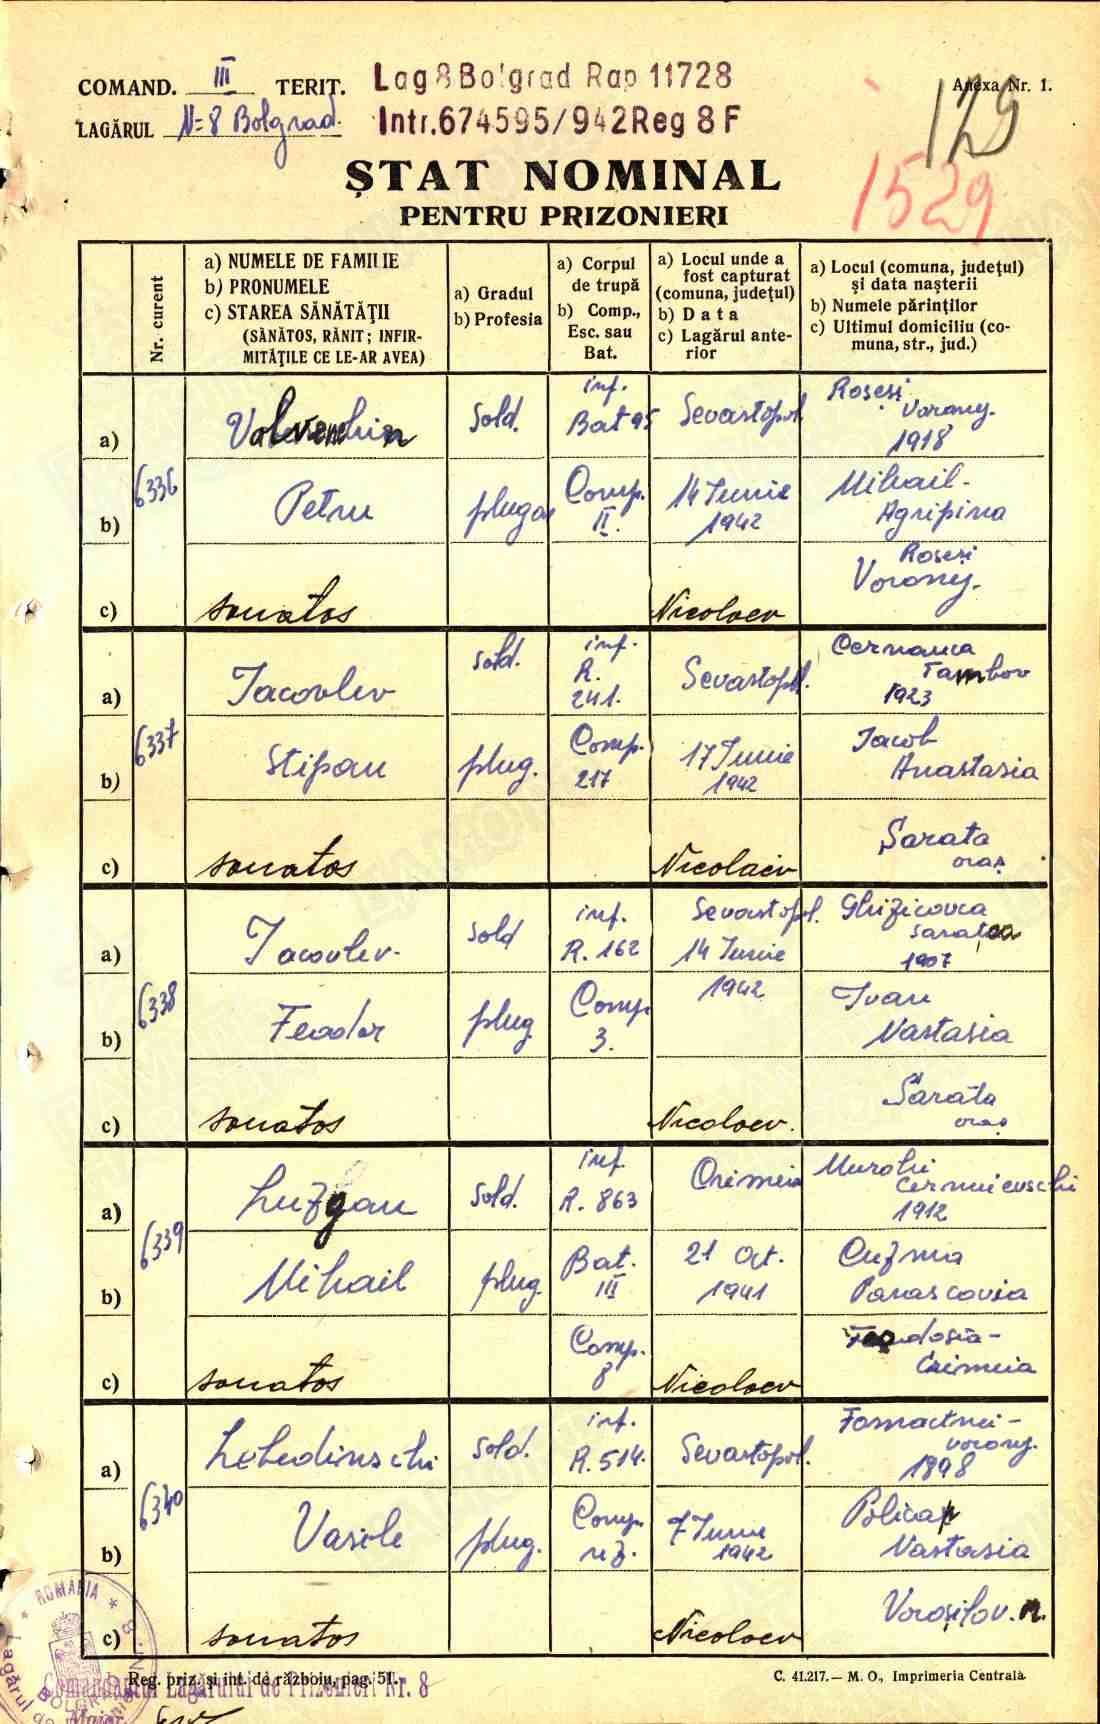 COMAND. III TERIT.
Lag 8 Bolgrad Rap 11728
Anexa Nr. 1.
LAGĂRUL N=8 Bolgrad.
Intr. 674595/942 Reg 8 F
129
1529
ȘTAT NOMINAL
PENTRU PRIZONIERI
Nr. curent
a) NUMELE DE FAMILIE
b) PRONUMELE
c) STAREA SĂNĂTĂȚII
(SĂNĂTOS, RĂNIT; INFIR-
MITĂȚILE CE LE-AR AVEA)
a) Gradul
b) Profesia
a) Corpul
de trupă
b) Comp.,
Esc. sau
Bat.
a) Locul unde a
fost capturat
(comuna, județul)
b) Data
c) Lagărul ante-
rior
a) Locul (comuna, județul)
și data nașterii
b) Numele părinților
c) Ultimul domiciliu (co-
muna, str., jud.)
6336
a) sold.
inf.
Bat 95
Sevastopol
Roseși
Voronej.
1918
b) Petru
plugar
Comp.
II.
14 Iunie
1942
Mihail-
Agripina
c) sanatos
Nicolaev
Roseși
Voronej.
6337
a) Iacovlev
sold.
inf.
R.
241.
Sevastopol.
Cernauca
Tambov
1923
b) Stipan
plug.
Comp.
217
17 Iunie
1942
Iacob
Anastasia
c) sanatos
Nicolaev
Sarata
oraș
6338
a) Iacovlev.
sold
inf.
R. 162
Sevastopol.
14 Iunie
1942
Ghizicovca
Saratea
1907
b) Feodor
plug.
Comp.
3.
Ivan
Nastasia
c) sanatos
Nicolaev.
Sarata
oraș
6339
a) Luzgan
sold.
inf.
R. 863
Crimeia
1912
b) Mihail
plug.
Bat.
III
21 Oct.
1941
Cuzma
Parascovia
c) sanatos
Comp.
8
Nicolaev
Feodosia-
Crimeia
6340
a) Lebedinschi
sold.
inf.
R. 514.
Sevastopol.
voronej.
1898
b) Vasile
plug.
Comp.
7 Iunie
1942
Policap
Nastasia
c) sanatos
Nicolaev
Voroșilov. n.
Reg. priz. și int. de război, pag. 51.
C. 41.217.— M. O., Imprimeria Centrală
ROMÂNIA
Lagărul de
BOLGRAD
Comandantul Lagărului de Prizonieri Nr. 8
Maior